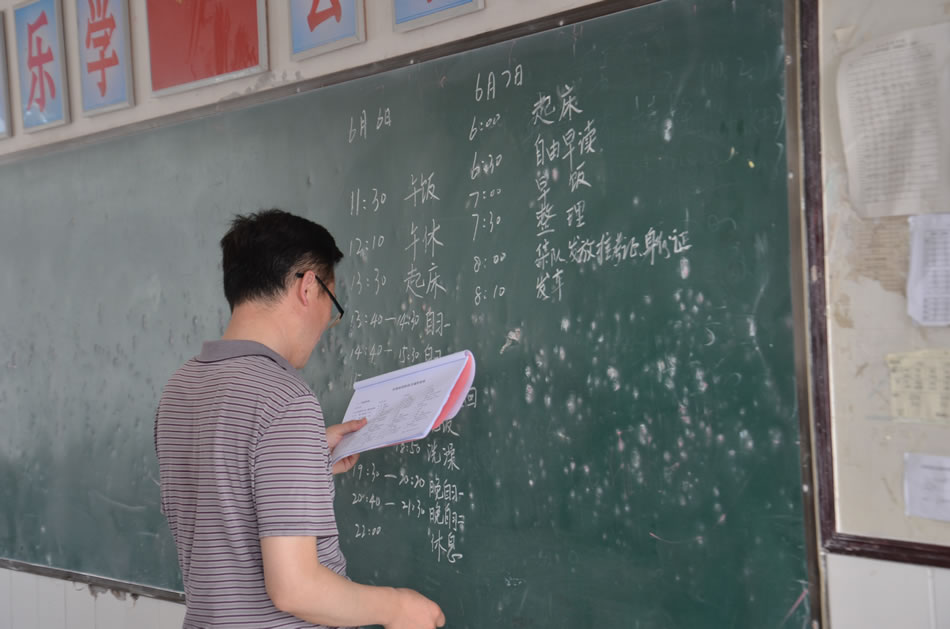 乐
学
6月6日
11:30 午饭
12:10 午休
13:30 起床
13:40—14:30 自习一
14:40—15:30 自习
18:50 洗澡
19:30—20:20 晚自习一
20:40—21:30 晚自习二
22:00 休息
6月7日
6:00 起床
6:30 自由早读
7:00 早饭
7:30 整理
8:00 集队发放准考证身份证
8:10 发车